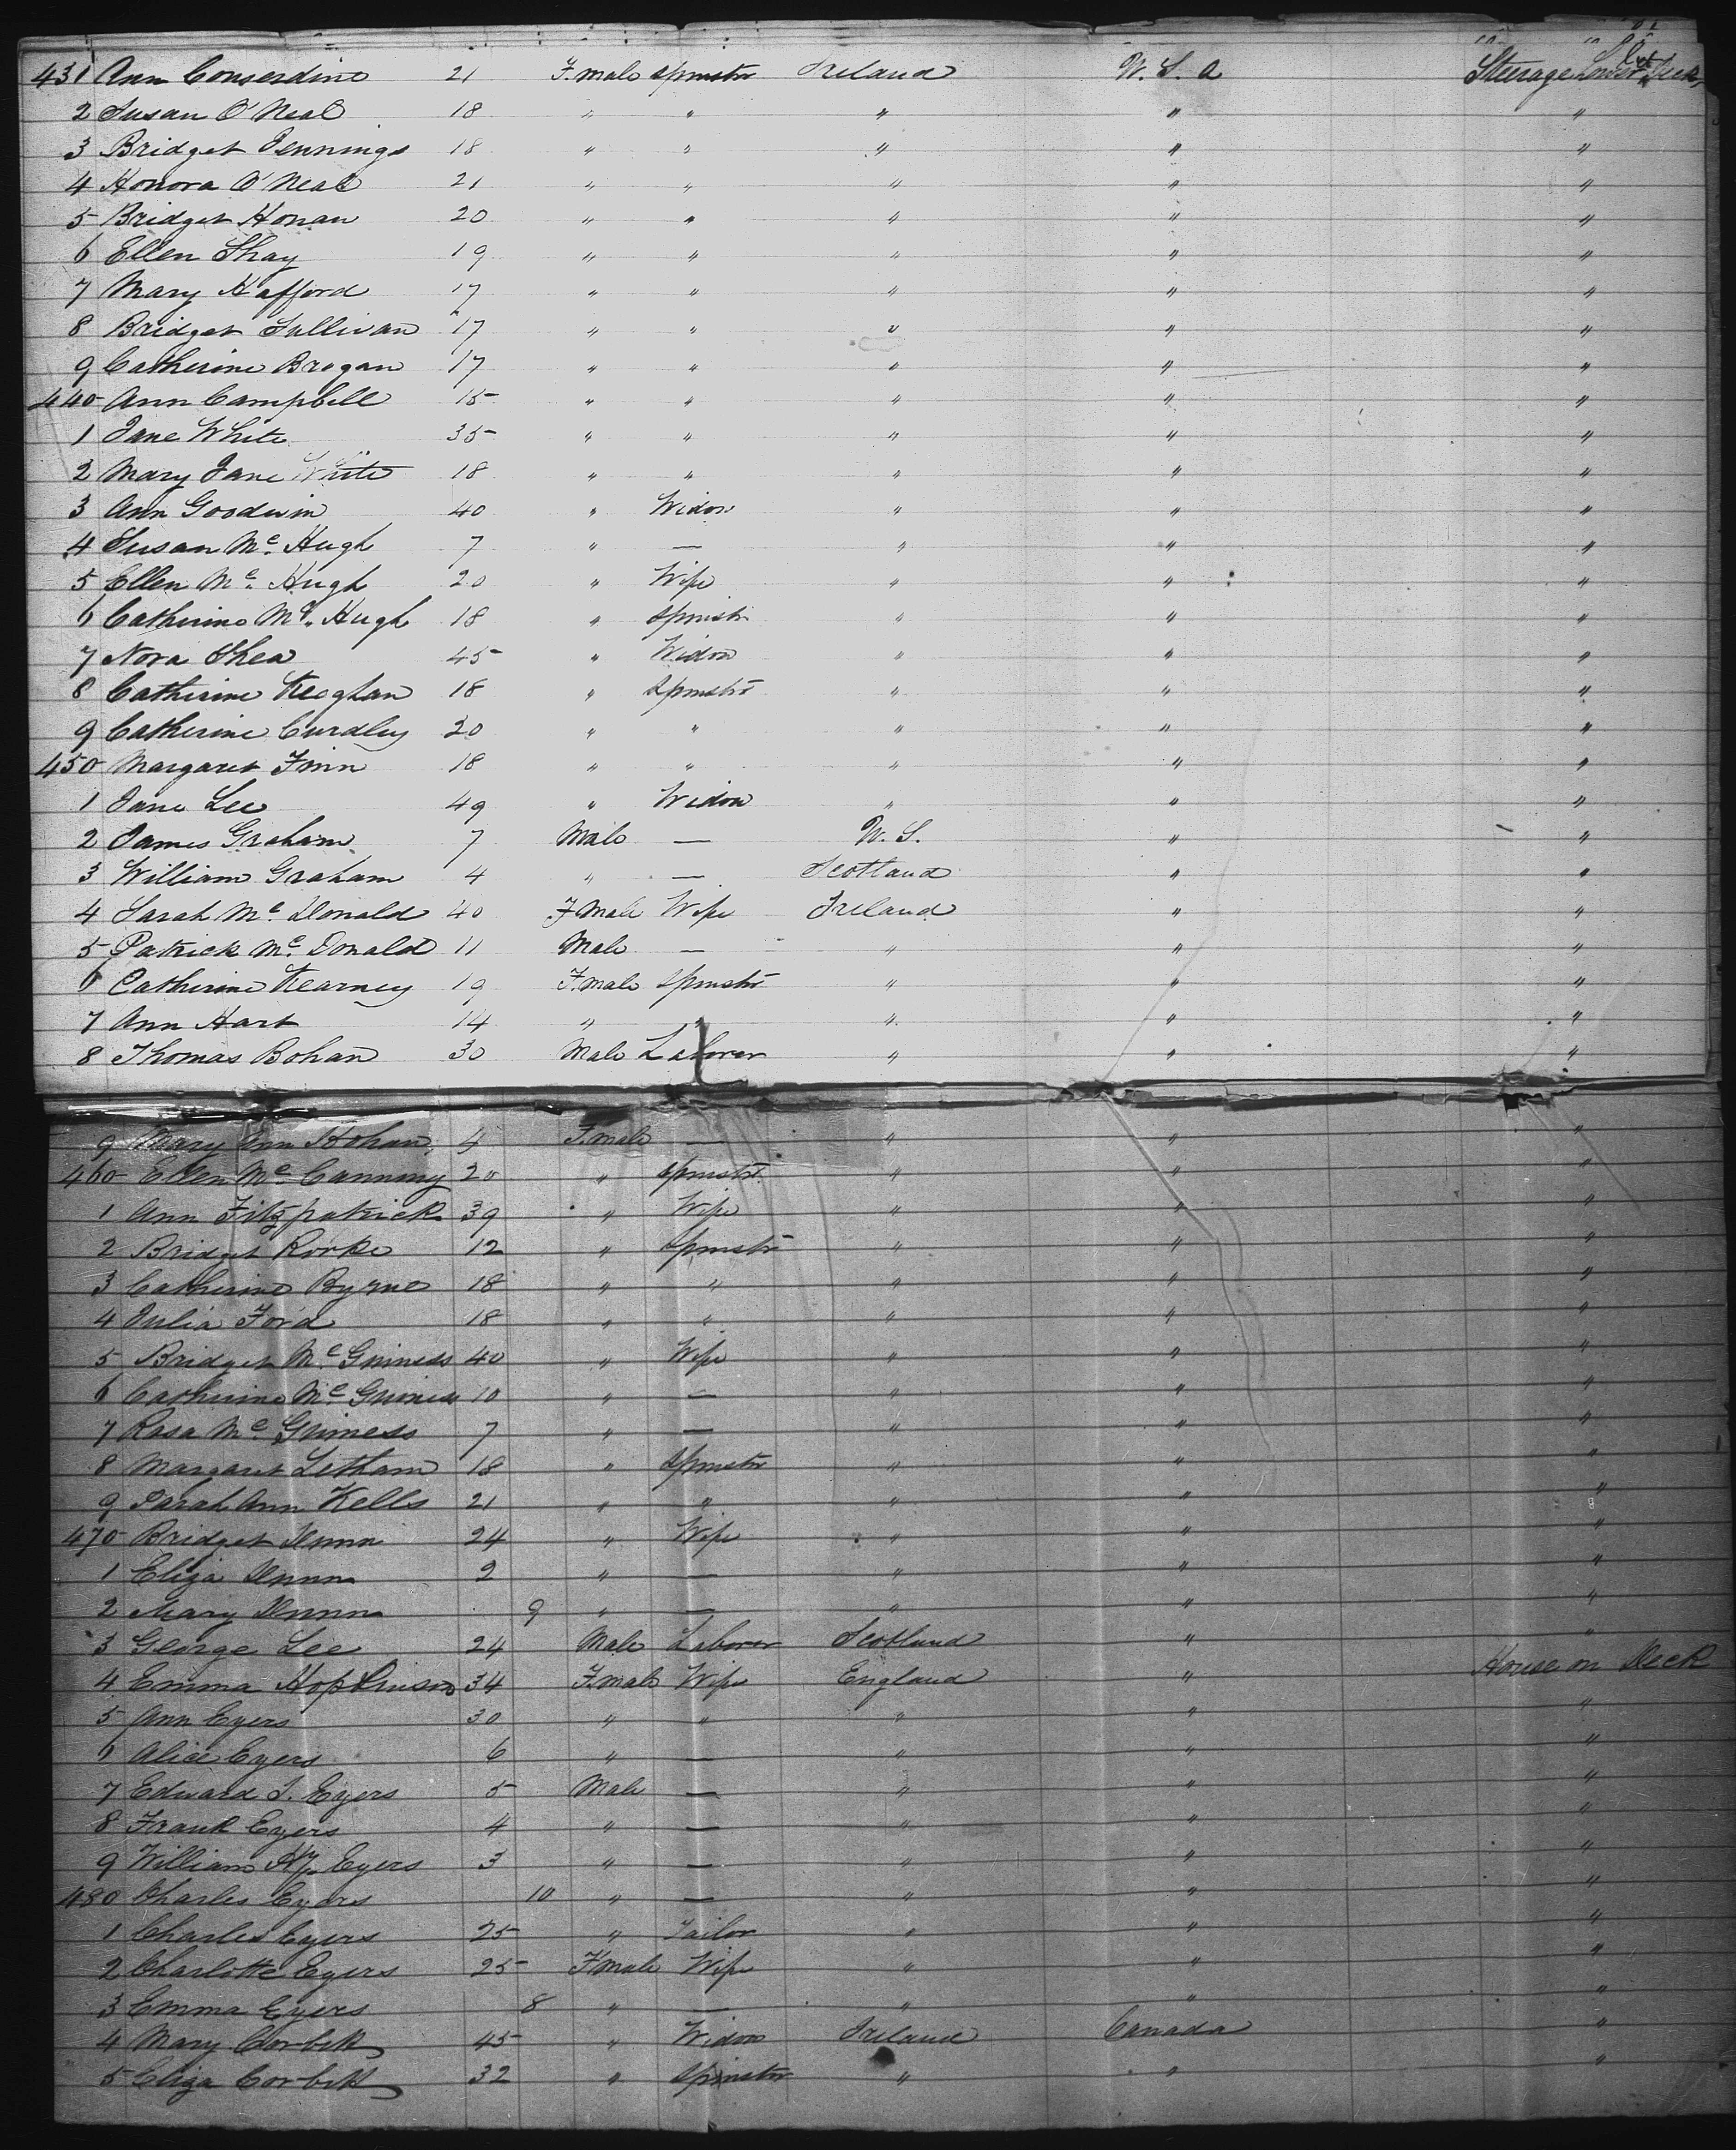 431 Ann Conserdine 21 Fmale Spinstr Ireland U. S. A Steerage Lower Deck
2 Susan O'Neal 18 " " " " "
3 Bridget Jennings 18 " " " " "
4 Honora O'Neal 21 " " " " "
5 Bridget Honan 20 " " " " "
6 Ellen Shay 19 " " " " "
7 Mary Hafford 17 " " " " "
8 Bridget Sullivan 17 " " " " "
9 Catherine Brogan 17 " " " " "
440 Ann Campbell 15 " " " " "
1 Jane White 35 " " " " "
2 Mary Jane White 18 " " " " "
3 Ann Goodwin 40 " Widow " " "
4 Susan Mc Hugh 7 " — " " "
5 Ellen Mc Hugh 20 " Wife " " "
6 Catherine Mc Hugh 18 " Spinstr " " "
7 Nora Shea 45 " Widow " " "
8 Catherine Keoghan 18 " Spinstr " " "
9 Catherine Curdley 20 " " " " "
450 Margaret Finn 18 " " " " "
1 Jane Lee 49 " Widow " " "
2 James Graham 7 Male — U. S. " "
3 William Graham 4 " — Scotland " "
4 Sarah Mc Donald 40 Fmale Wife Ireland " "
5 Patrick Mc Donald 11 Male — " " "
6 Catherine Kearney 19 Fmale Spinstr " " "
7 Ann Hart 14 " " " " "
8 Thomas Bohan 30 Male Laborer " " "
9 Mary Ann Hohan 4 Fmale — " " "
460 Ellen Mc Canniny 20 " Spinstr " " "
1 Ann Fitzpatrick 39 " Wife " " "
2 Bridget Rorke 12 " Spinstr " " "
3 Catherine Byrne 18 " " " " "
4 Julia Ford 18 " " " " "
5 Bridget Mc Guiness 40 " Wife " " "
6 Catherine Mc Guiness 10 " — " " "
7 Rosa Mc Guiness 7 " — " " "
8 Margaret Letham 18 " Spinstr " " "
9 Sarah Ann Kells 21 " " " " "
470 Bridget Dunn 24 " Wife " " "
1 Eliza Dunn 2 " — " " "
2 Mary Dunn 9 " — " " "
3 George Lee 24 Male Laborer Scotland " "
4 Emma Hopkinson 34 Fmale Wife England " House on Deck
5 Ann Eyers 30 " " " " "
6 Alice Eyers 6 " — " " "
7 Edward J. Eyers 5 Male — " " "
8 Frank Eyers 4 " — " " "
9 William Hy Eyers 3 " — " " "
480 Charles Eyers 10 " — " " "
1 Charles Eyers 25 " Tailor " " "
2 Charlotte Eyers 25 Fmale Wife " " "
3 Emma Eyers 8 " — " " "
4 Mary Corbett 45 " Widow Ireland Canada "
5 Eliza Corbett 32 " Spinstr " " "